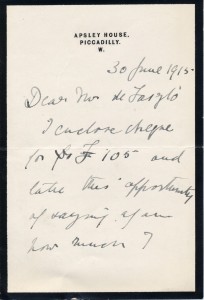 APSLEY HOUSE,
PICCADILLY.
W.
30 June 1915
Dear Mr de László
I enclose cheque
for £ 105 and
take this opportunity
of saying to you
how much I